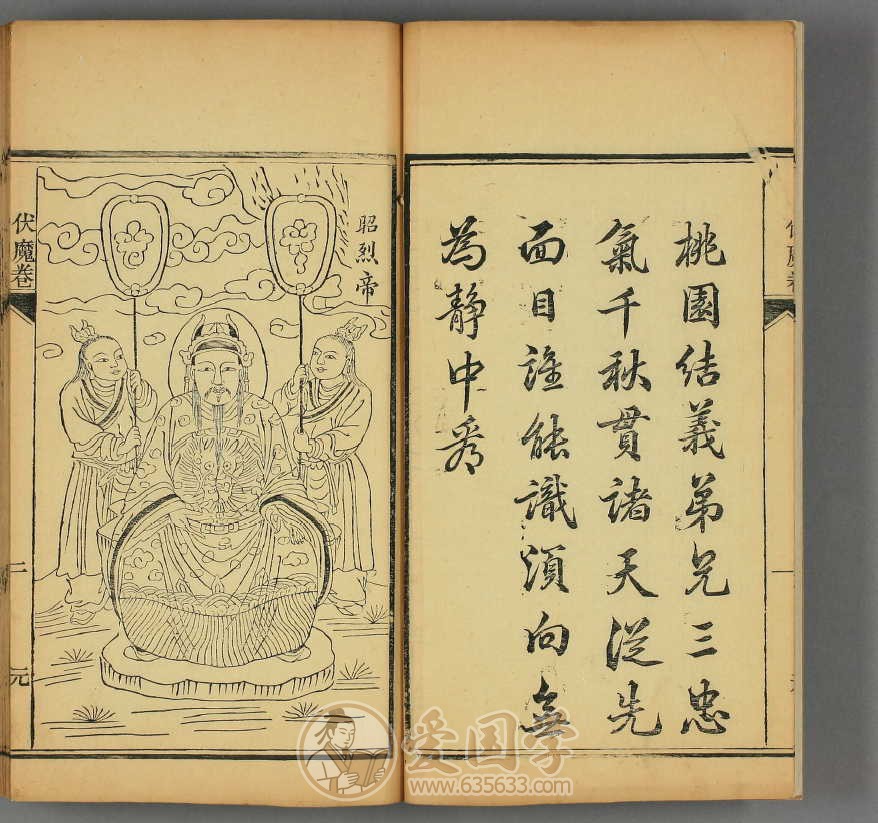 桃園結義弟兄三忠
氣千秋貫諸天從先
面目誰能識須向無
為靜中看
昭烈帝
伏魔卷
二
元
伏魔卷
一
爱国学
www.635633.com